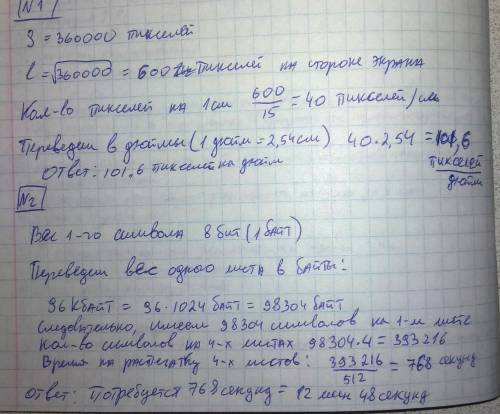 №1
S = 360000 пикселей
l = √360000 = 600 пикселей на стороне экрана
Кол-во пикселей на 1см 600/15 = 40 пикселей/см
Переведем в дюймы (1 дюйм = 2,54см) 40·2,54 = 101,6 пикселей/дюйм
Ответ: 101,6 пикселей на дюйм
№2
Вес 1-го символа 8 бит (1 байт)
Переведем вес одного листа в байты:
96 Кбайт = 96·1024 байт = 98304 байт
Следовательно, имеем 98304 символов на 1-м листе
Кол-во символов на 4-х листах 98304·4 = 393216
Время на распечатку 4-х листов: 393216/512 = 768 секунд
Ответ: Потребуется 768 секунд = 12 мин 48 секунд